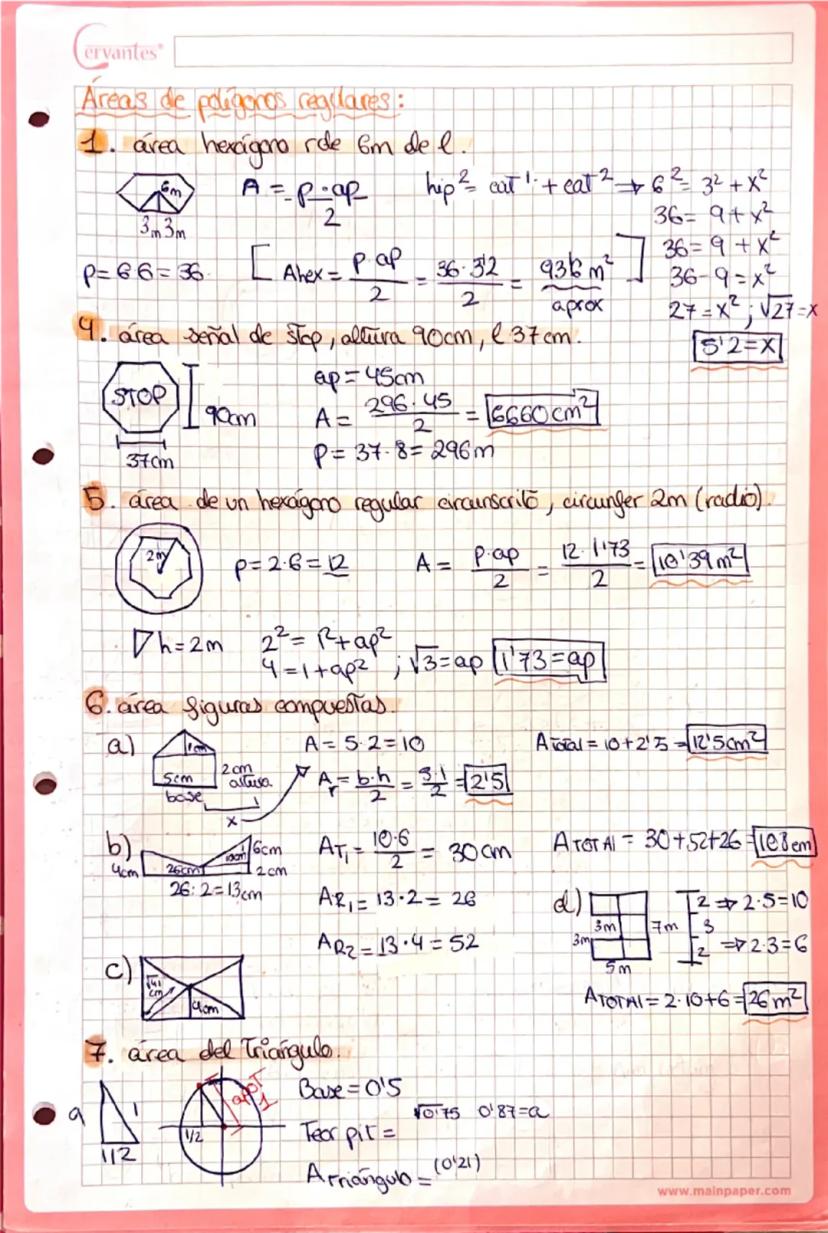 Cervantes®
Áreas de polígonos regulares:
1. área hexágono rde 6m de l.
6m
3m 3m
A = p·ap / 2
hip² = cat¹ + cat² → 6² = 3² + x²
36 = 9 + x²
36 = 9 + x²
36 - 9 = x²
27 = x² ; √27 = x
5'2 = x
p = 6·6 = 36
[ Ahex = p·ap / 2 = 36·5'2 / 2 = 93'6 m² ]
aprox
4. área señal de stop, altura 90cm, l 37cm.
STOP
90cm
37cm
ap = 45cm
A = 296·45 / 2 = 6660 cm²
p = 37·8 = 296m
5. área de un hexágono regular circunscrito, circunfer 2m (radio).
2m
p = 2·6 = 12
A = p·ap / 2 = 12·1'73 / 2 = 10'39 m²
h = 2m
2² = 1² + ap²
4 = 1 + ap² ; √3 = ap 1'73 = ap
6. área figuras compuestas.
a)
1cm
5cm
base
2cm
altura
x
A = 5·2 = 10
Ar = b·h / 2 = 5·1 / 2 = 2'5
A total = 10 + 2'5 = 12'5cm²
b)
4cm
26cm
10cm
6cm
2cm
26:2 = 13cm
AT₁ = 10·6 / 2 = 30cm
AR₁ = 13·2 = 26
AR₂ = 13·4 = 52
ATOTAl = 30+52+26 = 108cm
c)
√41
cm
4cm
d)
3m
3m
5m
7m
2 → 2·5 = 10
3
2 → 2·3 = 6
ATOTAl = 2·10+6 = 26m²
7. área del triángulo.
a
1
1/2
1/2
apot
1
Base = 0'5
Teor pit = √0'75 0'87 = a
Atriángulo = (0'21)
www.mainpaper.com